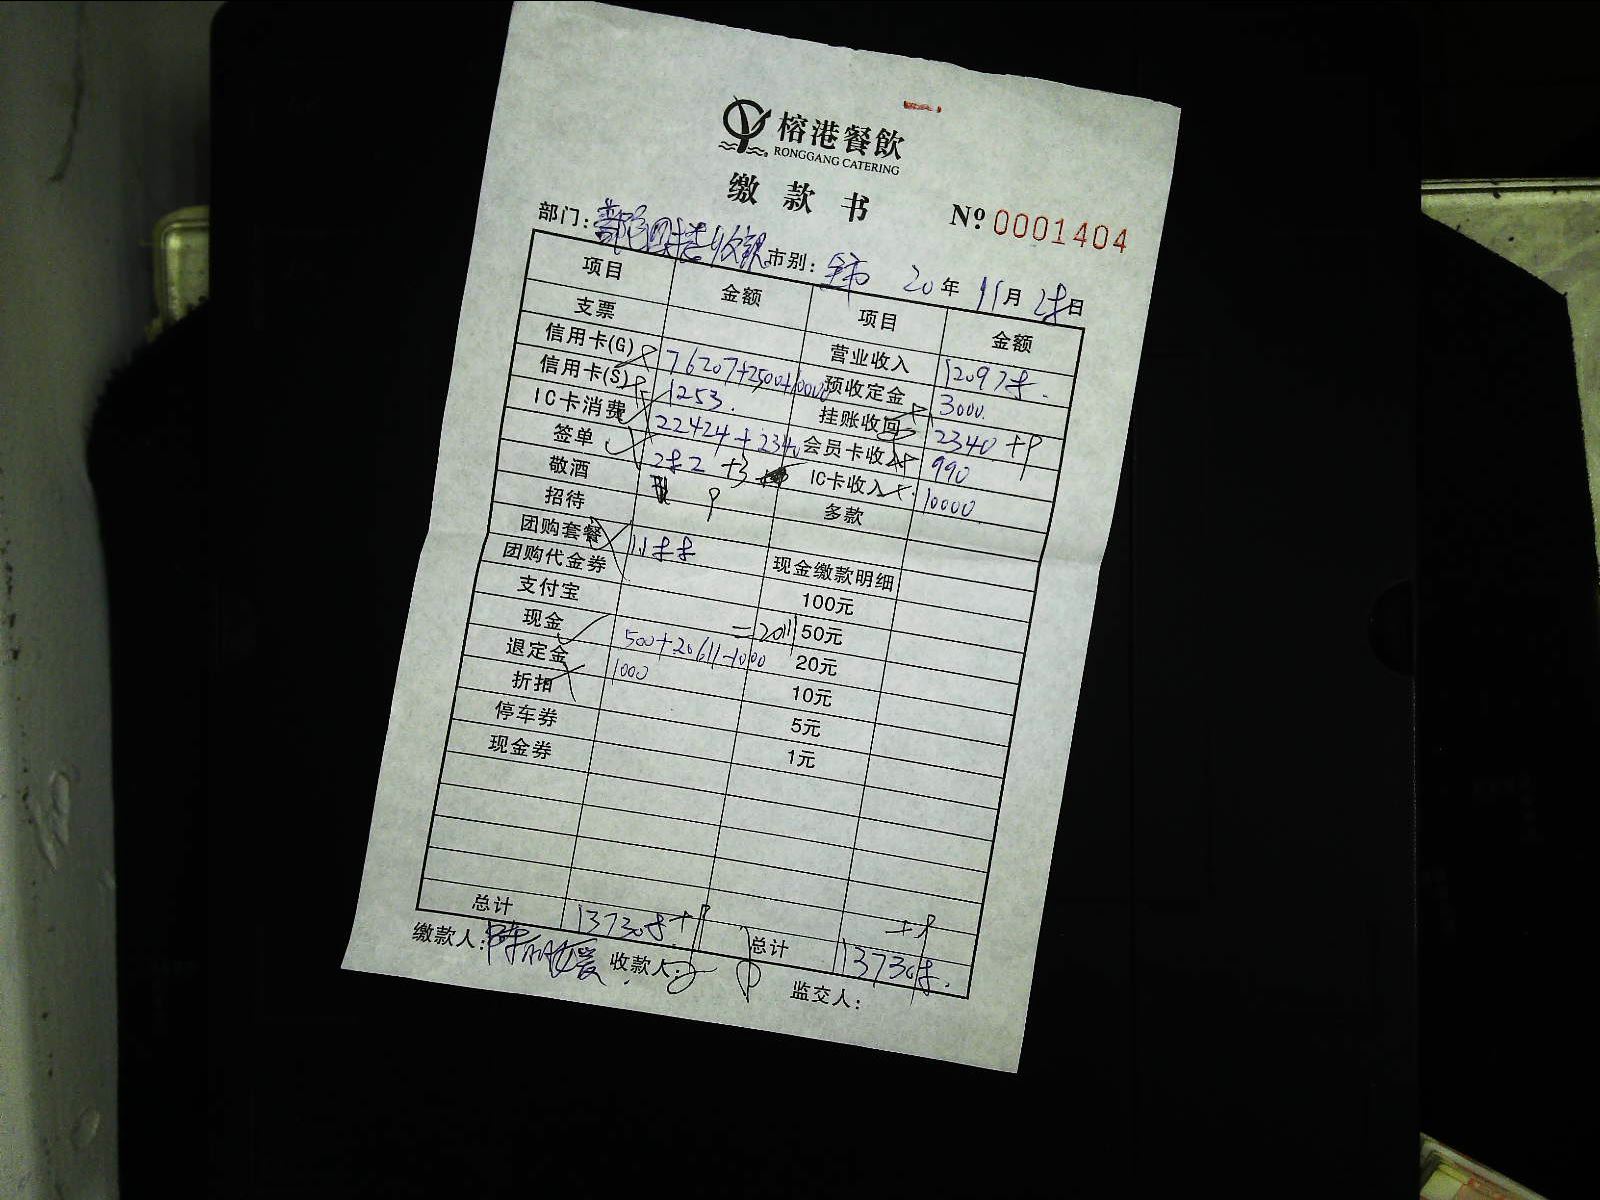 榕港餐飲
RONGGANG CATERING
缴款书
№ 0001404
部门: 收银 市别: 全市 20年 11月 28日
项目 金额 项目 金额
支票 营业收入 120978.
信用卡(G) 76207+2500+10000 预收定金 3000.
信用卡(S) 1253. 挂账收回 2340 +P
IC卡消费 22424+2340 会员卡收入 990
签单 282 +3 IC卡收入 10000
敬酒 P 多款
招待
团购套餐 1188 现金缴款明细
团购代金券 100元
支付宝 =20111 50元
现金 500+20611-1000 20元
退定金 1000 10元
折扣 5元
停车券 1元
现金券
总计 137308+P 总计 +P 137308.
缴款人: 收款人: 监交人: